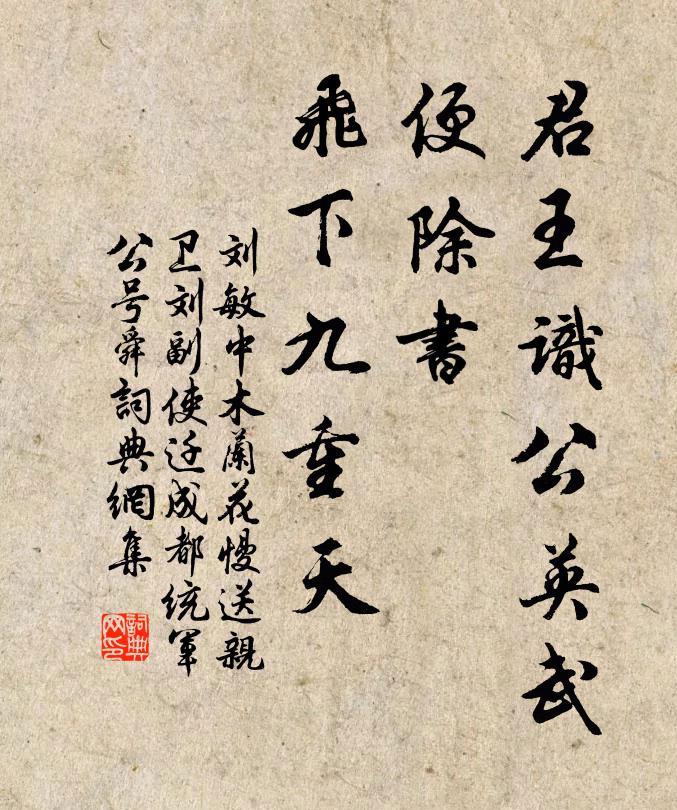 君王識公英武
便除書
飛下九重天
刘敏中木蘭花慢送親
卫刘副使迁成都统军
公号舜詞典網集
詞典
网印